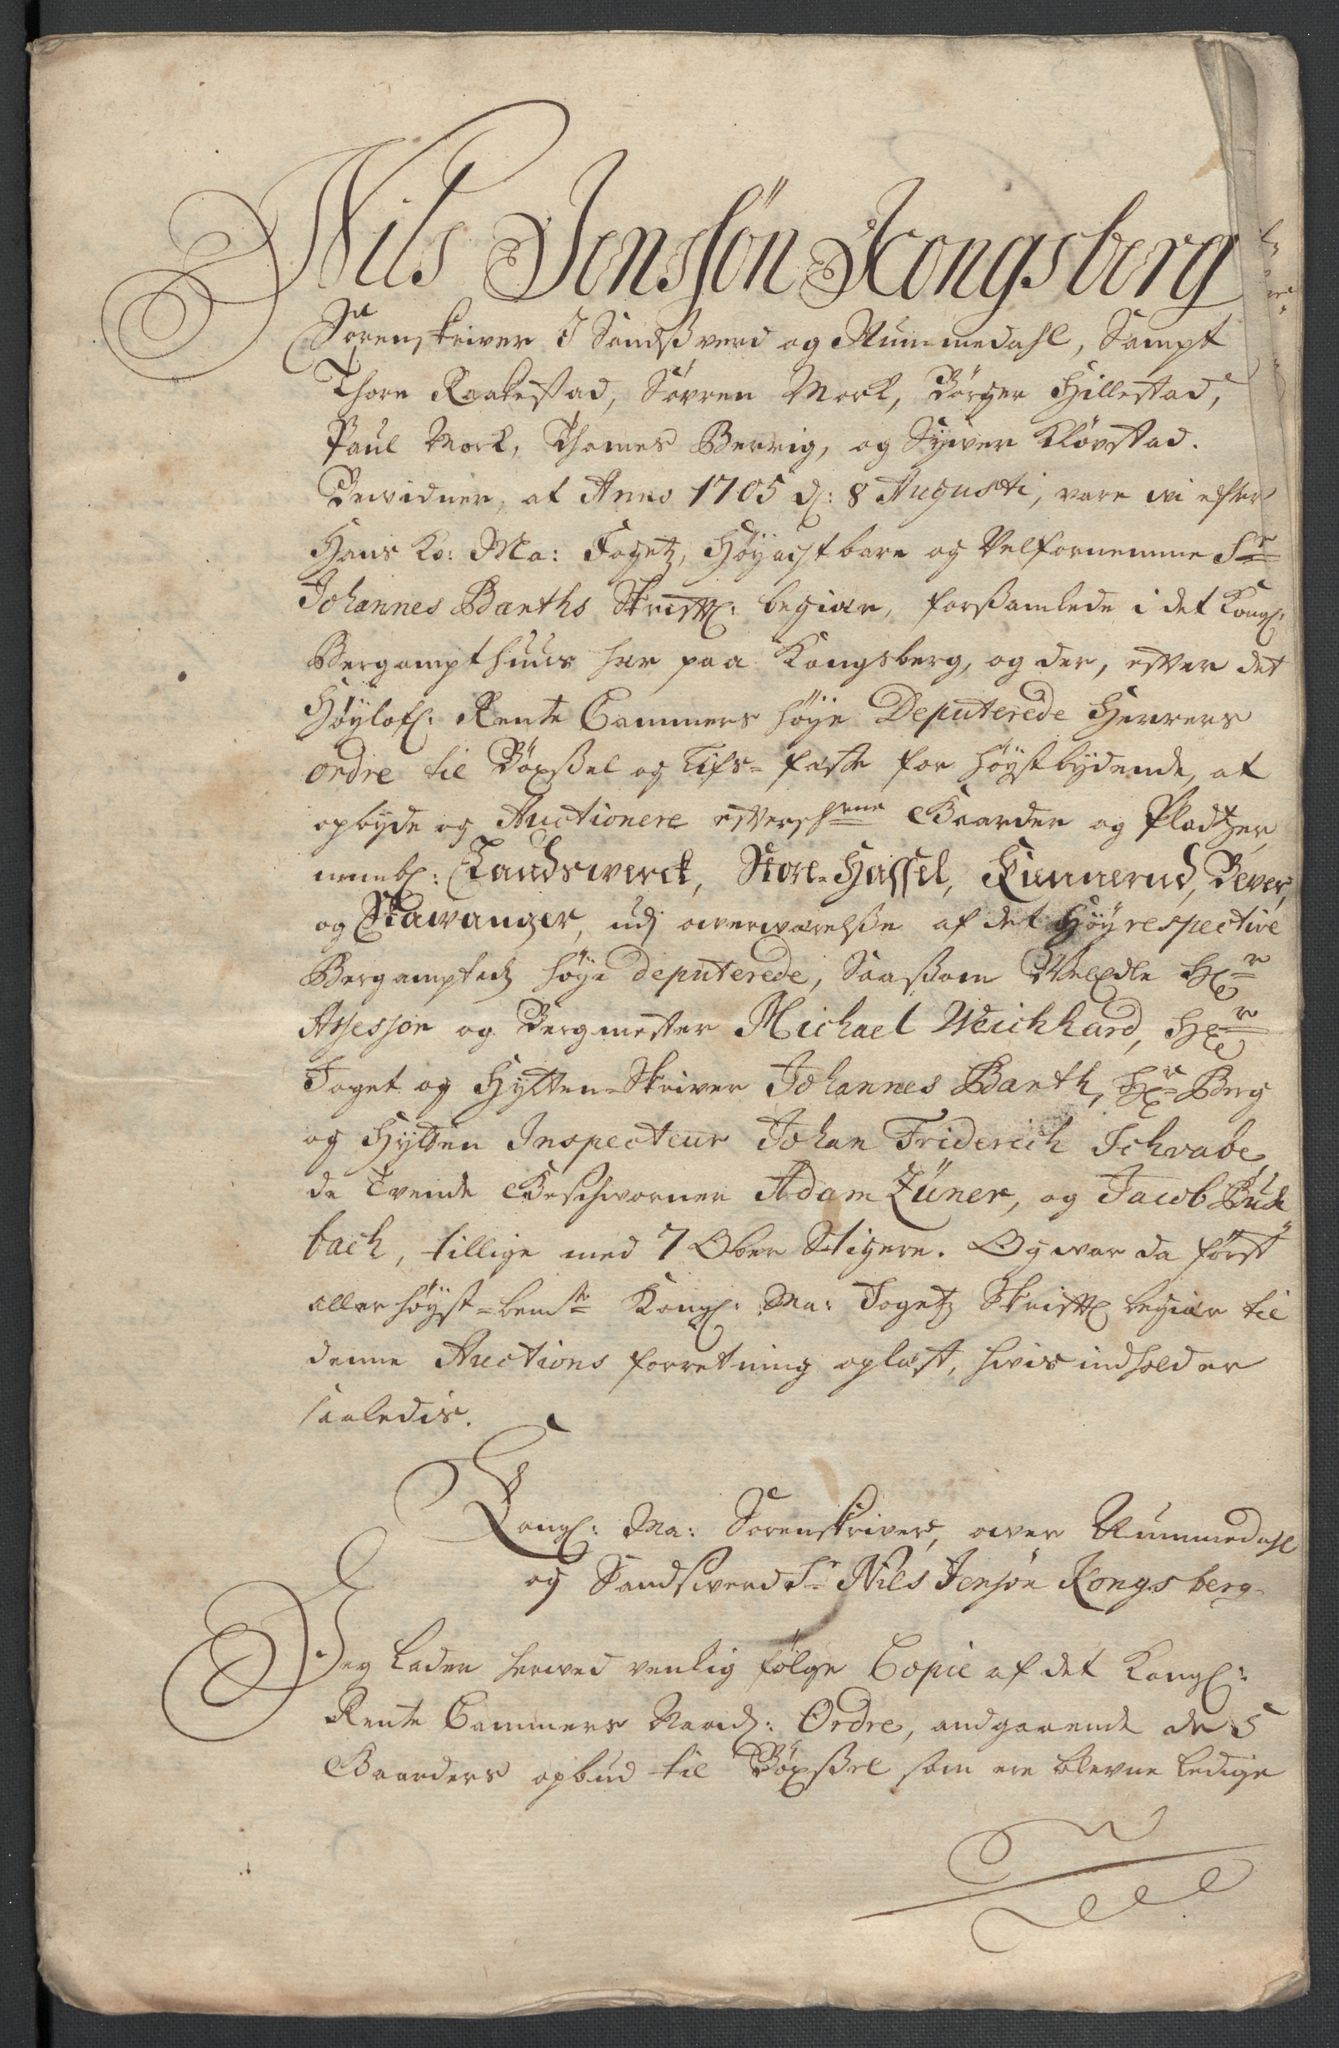 Nils Jenssøn Kongsberg
Sorenskriver I Sandsverd og Nummedahl, Sampt
Thore Raakestad, Søvren Mork, Børger Hillestad,
Paul Mork, Thomes Berrig, og Syver Kløvstad.
Bevidner, at Anno 1705 d: 8 Augusti, vare wi efter
Hans Ko: Ma: Fogetz, Høyachtbare og Velfornemme Sr
Johannes Barths Skriftl: begiær, forsamlede i det Kongl:
Bergampthuus her paa Kongsberg, og der, efter det
Høylofl: Rente Cammers høye Deputerede Herrers
ordre til Böxsel og Lifs-feste for høystbydende, at
opbyde og Auctionere efterschrefne Gaarder og Pladtzer,
nembl: Landswerck, Store-Hassel, Funnerud, Bever,
og Stawanger, udj owerwærelse af det Høyrespective
Bergamptedz høye deputerede, Saasom VelEdle Hr
Assessor og Bergmester Michael Weichhard, Hr
Foget og Hytten-Skriver Johannes Barth, Hr Berg
og Hytten Inspecteur Johan Friderich Schvabe,
de Tvende Geschworner Adam Züner, og Jacob Bud
bach, tillige med 7 Ober Stigere. Og war da først
aller høyst-bemte Kongl: Ma: Fogetz Skriftl begiær til
denne Auctions forretning oplæst, hvis indhold er
saaledis.
Kongl: Ma: Sorenskriver, ower Nummedahl
og Sandswerd Sr Nils Jensøn Kongsberg
Jeg lader herved venlig følge Copie af det Kongl:
Rente Cammers Naadl: Ordre, andgaaende de 5
Gaarders opbud til Böxsel som ere blevne ledige